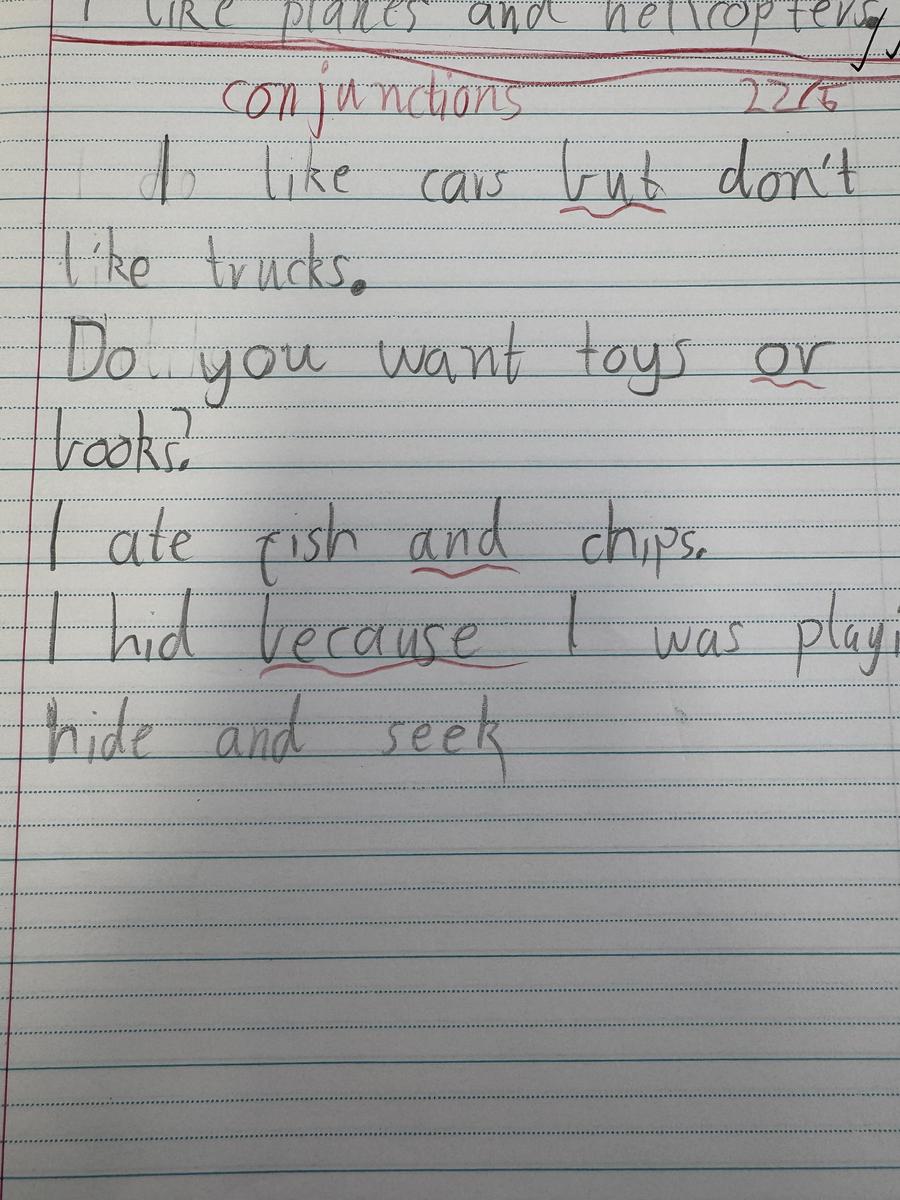 I like planes and helicopters
conjunctions 22/5
I like cars but don't
like trucks.
Do you want toys or
books?
I ate fish and chips.
I hid because I was playi
hide and seek